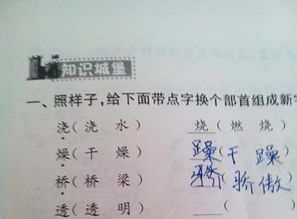 知识城堡
一、照样子,给下面带点字换个部首组成新
浇(浇 水) 烧(燃 烧)
燥(干 燥) 躁(干 躁)
桥(桥 梁) 骄(骄傲)
透(透 明) ( )